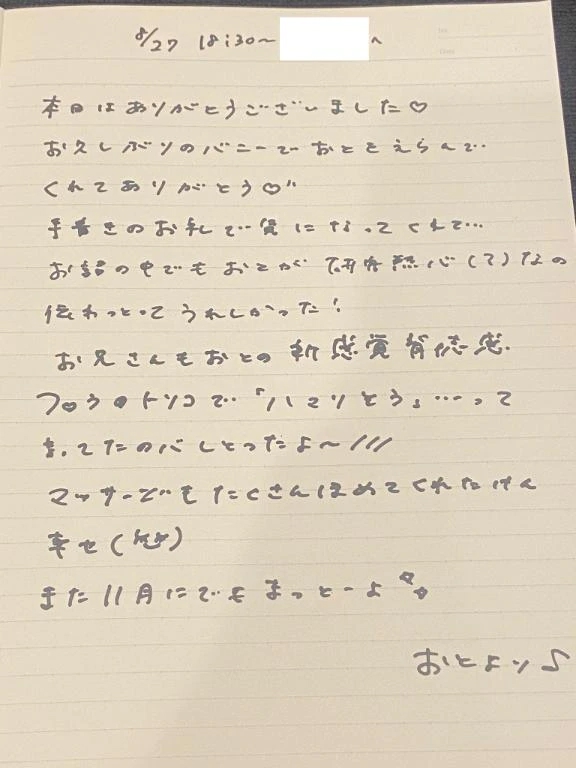 8/27 18:30〜 へ
本日はありがとうございました♡
お久しぶりのバニーでおとをえらんで
くれてありがとう♡"
手書きのお礼で貨になってくれて…
お話の中でもおとが研究熱心(?)なの
伝わっとってうれしかった!
お兄さんもおとの新感覚背徳感.
フロうのトリコで「ハマりとう」…って
まってたのバレとったよ〜///
マッサージもたくさんほめてくれたけん
幸せ( )
また11月にでもまっとーよ
おとより♪